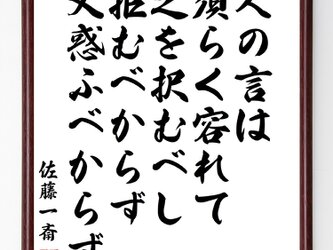 人の言は
須らく容れて
之を択むべし
拒むべからず
又惑ふべからず
佐藤一斎